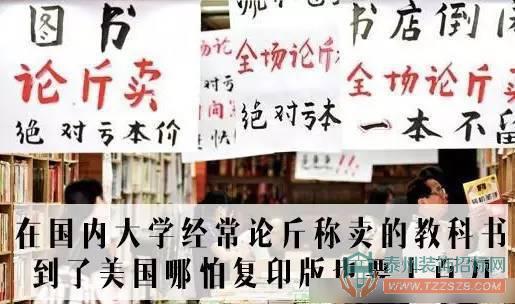 图书
论斤卖
绝对亏本价
全场论斤
绝对亏本
书店倒闭
全场论斤卖
一本不留
在国内大学经常论斤称卖的教科书
到了美国哪怕复印版
泰州装饰招标网
www.tzzszb.com